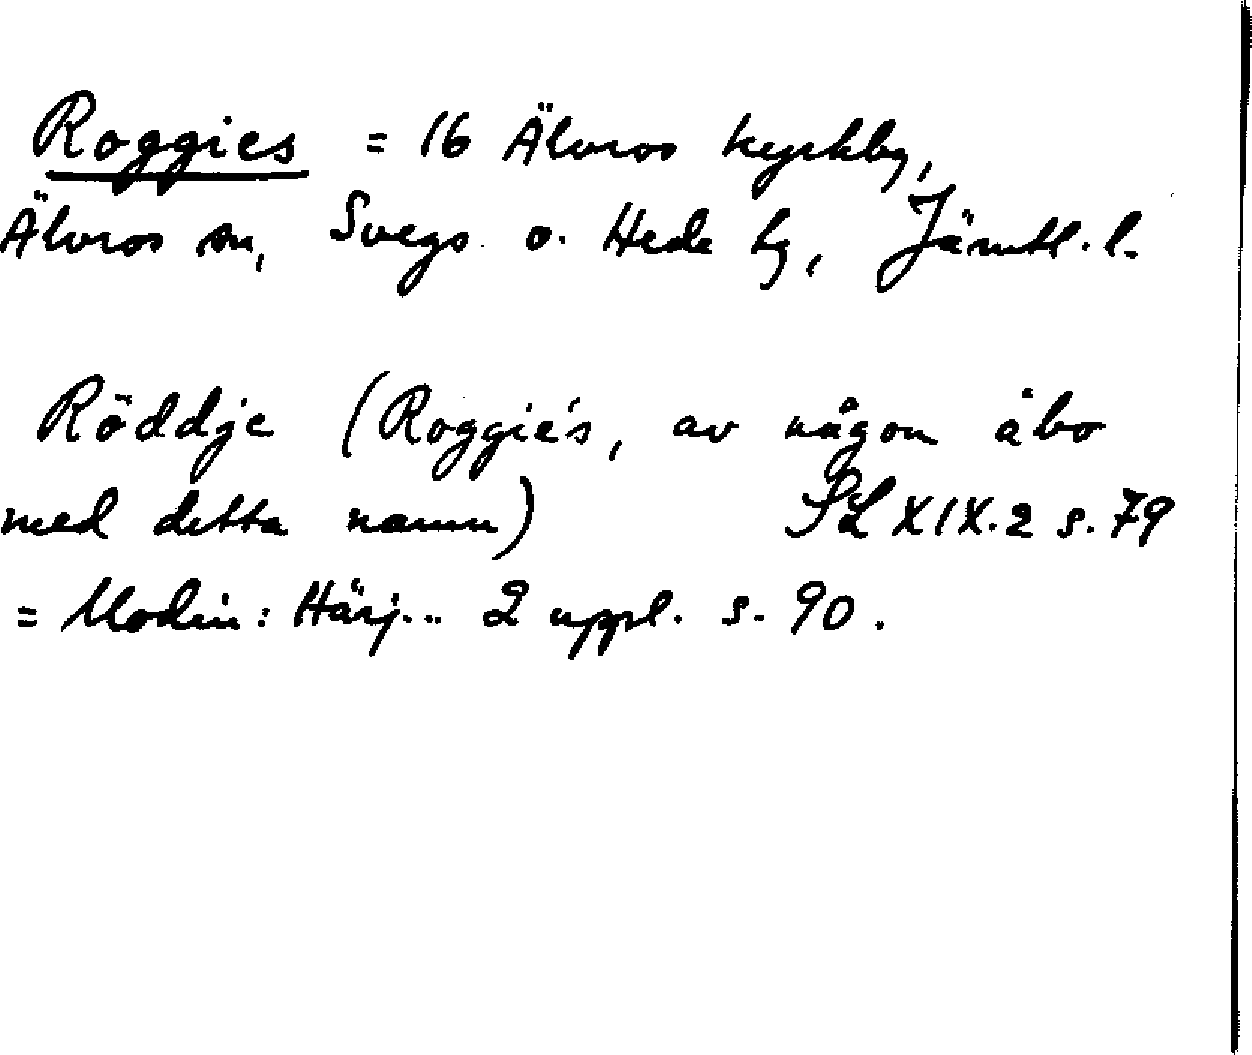 Roggies = 16 Älvros kyrkby,
Älvros sn, Svegs o. Hede tg, Jämtl. l.
Röddje (Roggiés, av någon åbo
med detta namn) SL XIX.2 s. 79
= Modin: Härj... 2 uppl. s. 90.